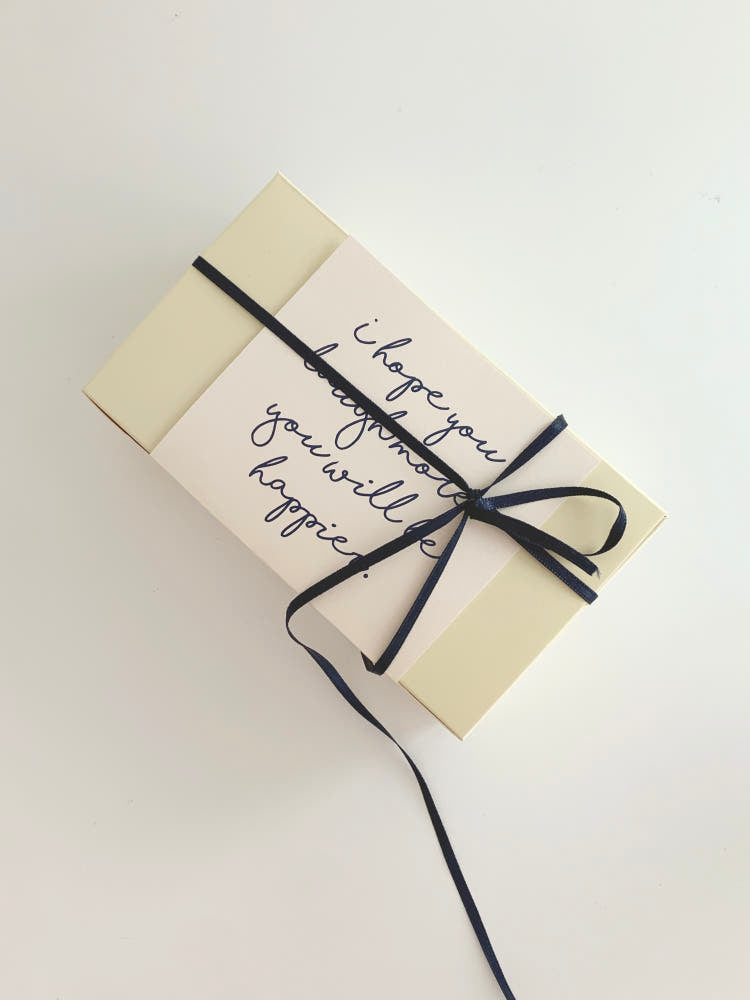 i hope you
laugh more
you will be
happier.